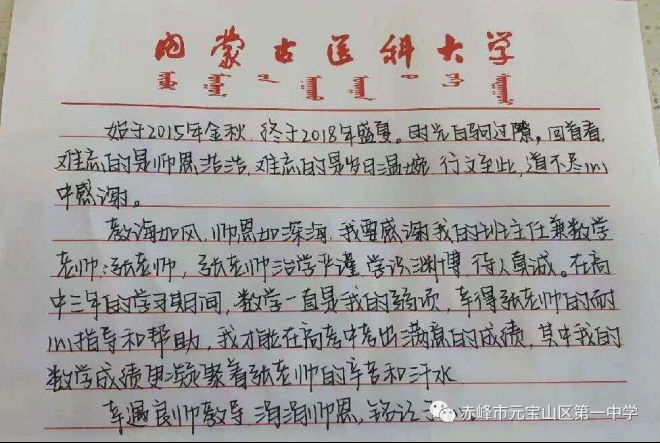 内蒙古医科大学
始于2015年金秋,终于2018年盛夏。时光白驹过隙,回首看,
难忘的是师恩浩浩,难忘的是岁月温婉,行文至此,道不尽心
中感谢。
教诲如风,师恩如深海,我要感谢我的班主任兼数学
老师:张老师,张老师治学严谨,学识渊博,待人真诚。在高
中三年的学习期间,数学一直是我的弱项,幸得张老师的耐
心指导和帮助,我才能在高考中考出满意的成绩,其中我的
数学成绩更凝聚着张老师的辛苦和汗水
幸遇良师教导,涓涓师恩,铭记于心
赤峰市元宝山区第一中学